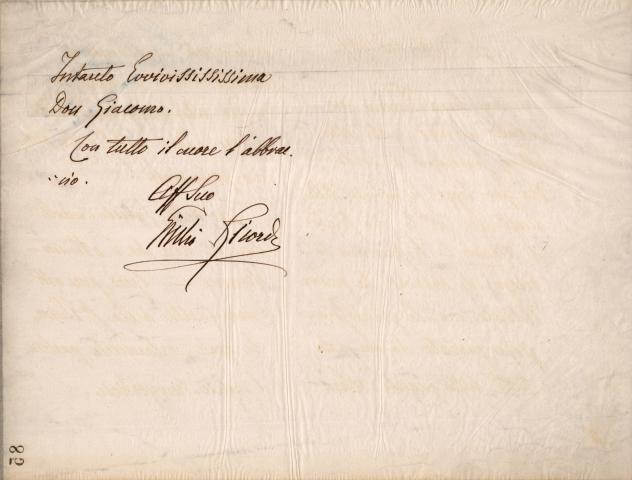 Intanto Evvivississississima
Don Giacomo.
Con tutto il cuore l'abbrac-
-cio.
Aff Suo
Giulio Ricordi
82